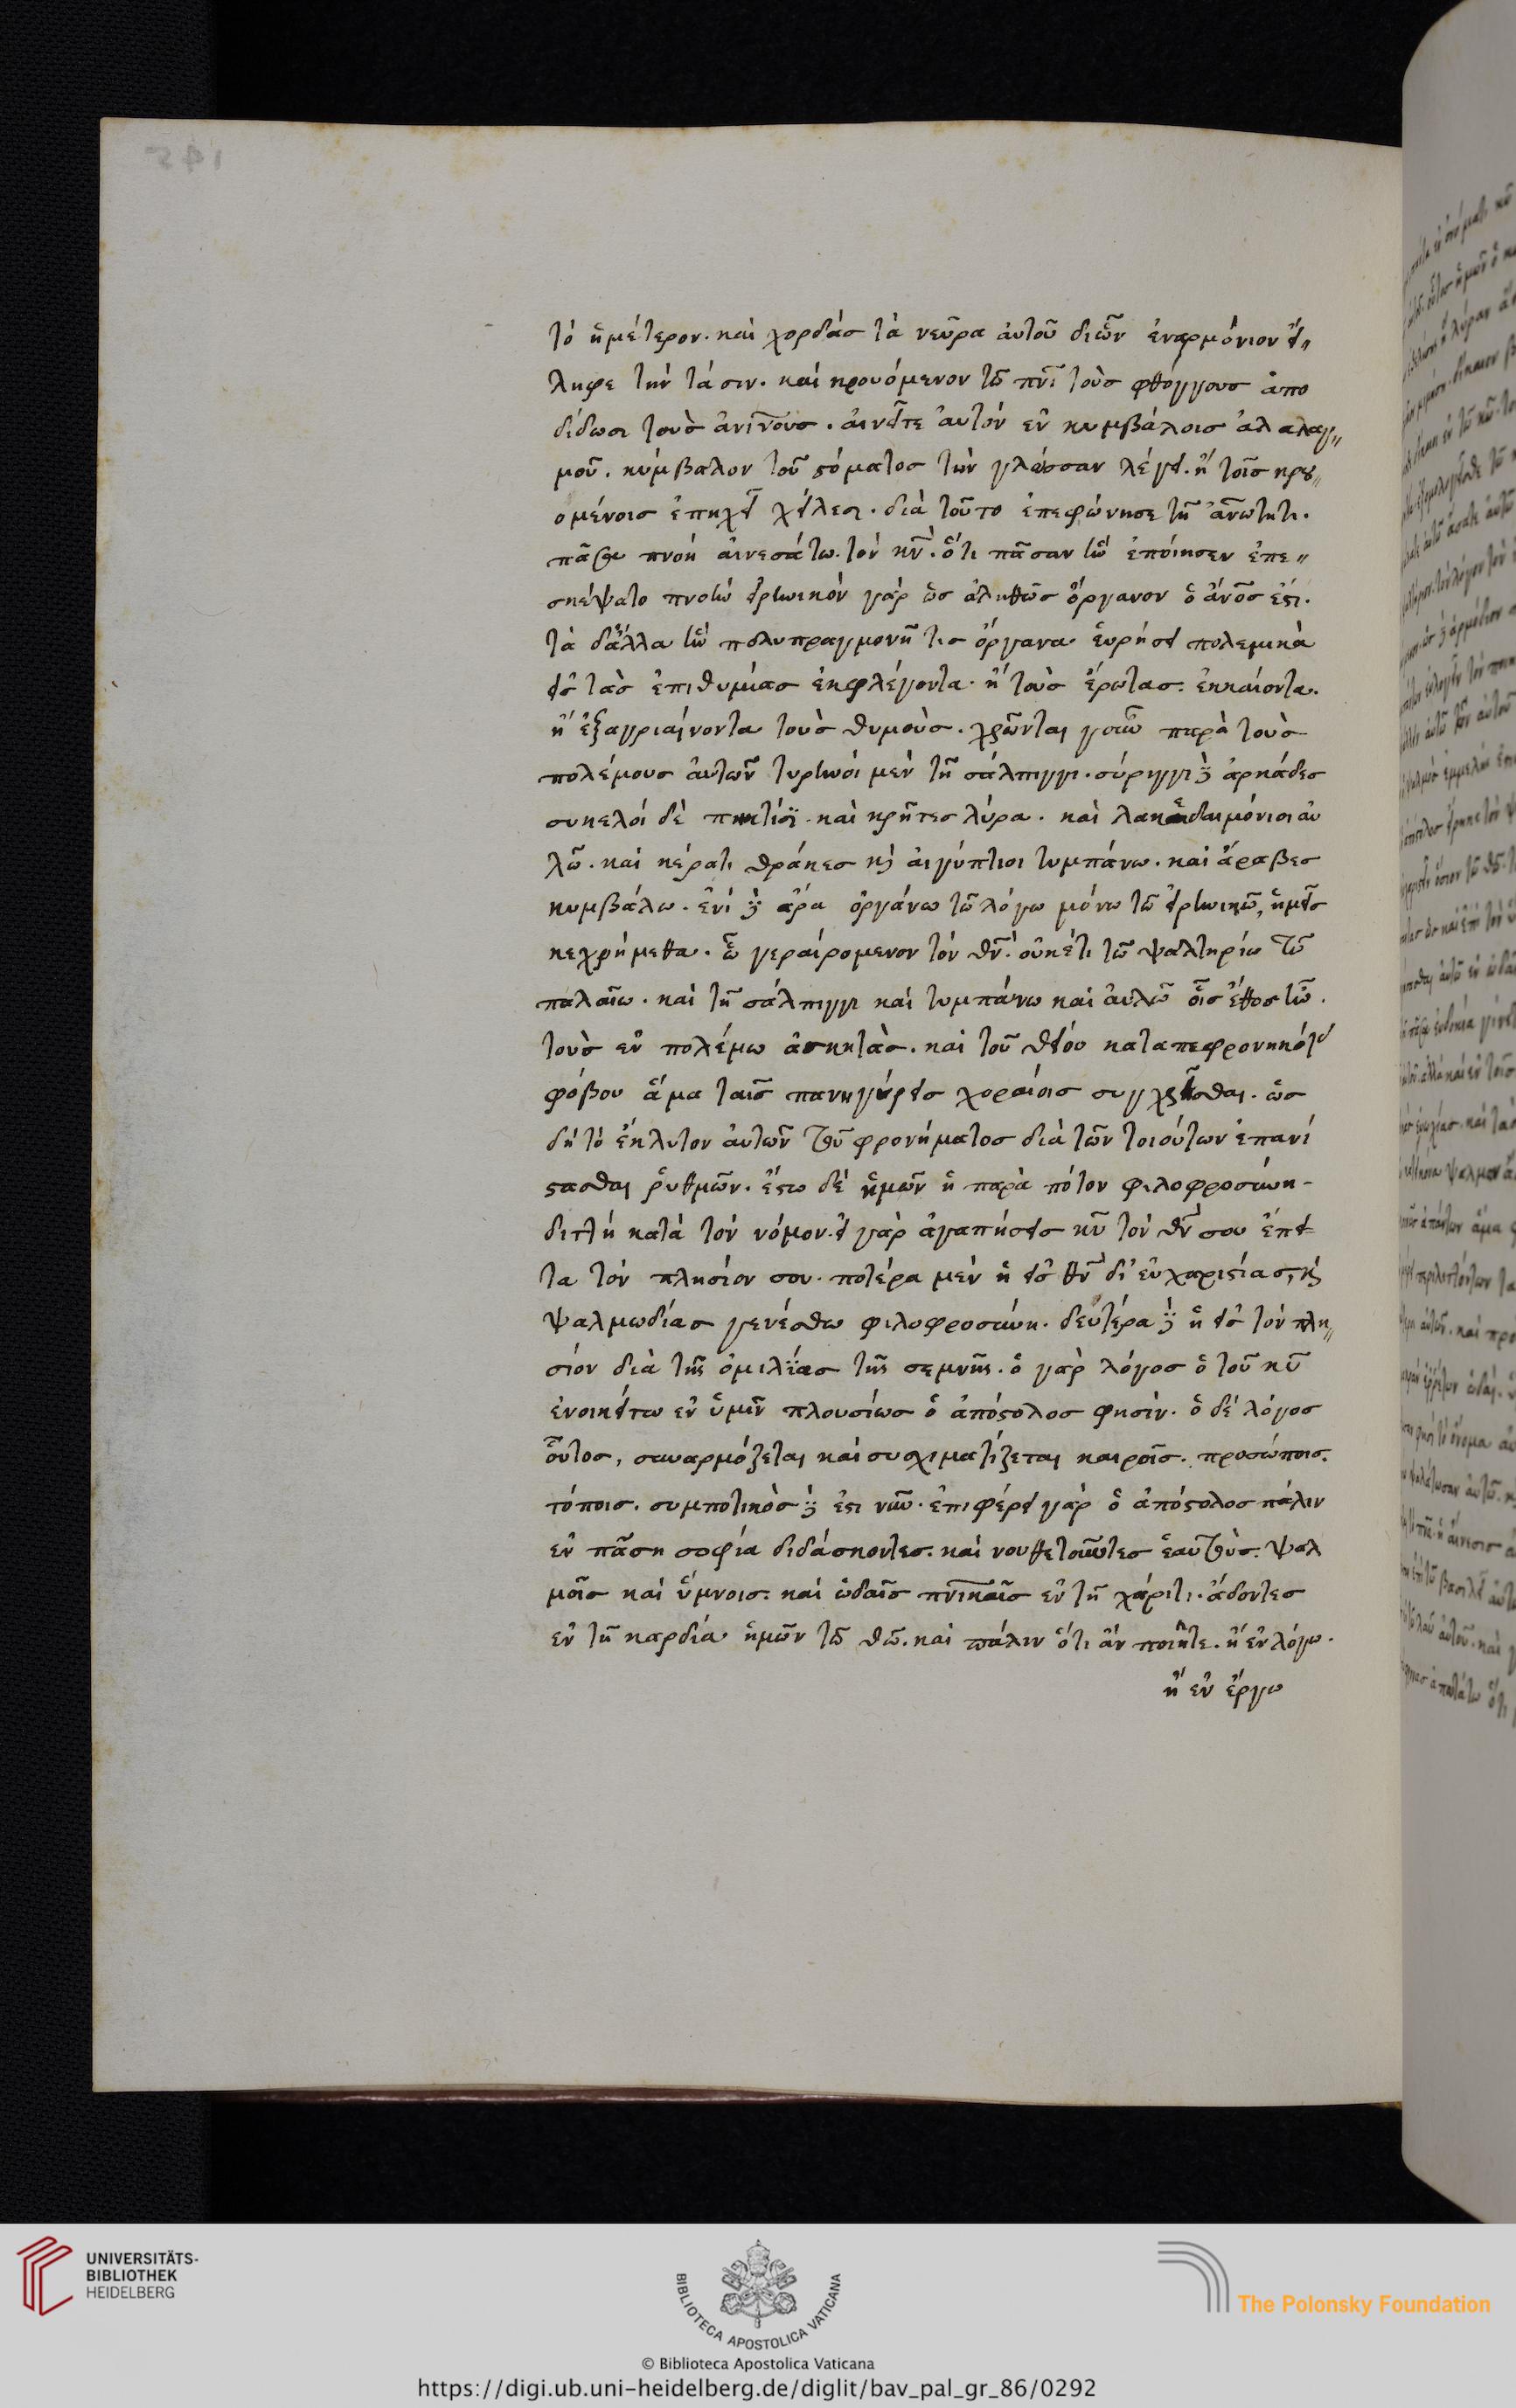 τὸ ἡμέτερον. καὶ χορδάσ τὰ νεῦρα ἀυτοῦ διὧν ἐναρμόνιον ἔι〃
ληφε τὴν τάσιν. καὶ κρουόμενον τῶ πν̅ι τοὺσ φθόγγουσ ἀπο
δίδωσι τοὺσ ἀν̅ι̅νουσ. ἀινεῖτε ἀυτὸν ἐν κυμβάλοισ ἀλαλαγ〃
μοῦ. κύμβαλον τοῦ ϛόματοσ τὴν γλῶσσαν λέγει. ἢ τοῖσ κρου〃
ομένοισ ἐπηχεῖ χείλεσι. διὰ τοῦτο ἐπεφώνησε τῆ ἀν̅ωτητι.
πᾶσα πνοὴ ἀινεσάτω τὸν κν̅. ὅτι πᾶσαν ἣν ἐποίησεν ἐπε〃
σκέψατο πνοὴν ἐιρηνικὸν γὰρ ὡσ ἀληθῶσ ὄργανον ὁ ἄν̅οσ ἐϛι.
τὰ δἄλλα ἢν πολυπραγμονῆ τισ ὄργανα ἑυρήσει πολεμικὰ
εἰσ τὰσ ἐπιθυμίασ ἐκφλέγοντα. ἢ τοὺσ ἔρωτασ ἐκκαίοντα.
ἢ ἐξαγριαίνοντα τοὺσ θυμοὺσ. χρῶνται γοῦν παρὰ τοὺσ
πολέμουσ ἀυτῶν τυρηνοὶ μὲν τῆ σάλπιγγι. σύριγγι δὲ ἀρκάδεσ
σικελοὶ δὲ πηκτίσι. καὶ κρῆτεσ λύρα. καὶ λακεδαιμόνιοι ἀυ
λῶ. καὶ κέρατι θράκεσ καὶ ἀιγύπτιοι τυμπάνω. καὶ ἄραβεσ
κυμβάλω. ἑνὶ δὲ ἄρα ὀργάνω τῶ λόγω μόνω τῶ ἐιρηνικῶ, ἡμεῖσ
κεχρήμεθα. ὧ γεραίρομενον τὸν θν̅. ὀυκέτι τῶ ψαλτηρίω τῶ
παλαῖω. καὶ τῆ σάλπιγγι καὶ τυμπάνω καὶ ἀυλῶ οἷσ ἔθοσ ἦν.
τοὺσ ἐν πολέμω ἀσκητὰσ. καὶ τοῦ θείου καταπεφρονηκότεσ
φόβου ἅμα ταῖσ πανηγύρεισ χοραίοισ συγχρῆσθαι. ὡσ
δὴ τὸ ἔκλυτον ἀυτῶν τοῦ φρονήματοσ διὰ τῶν τοιούτων ἐπανί
ϛασθαι ῥυθμῶν. ἔϛω δὲ ἡμῶν ἡ παρὰ πότον φιλοφροσύνη.
διτλὴ κατὰ τὸν νόμον. εἰ γὰρ ἀγαπήσεισ κν̅ τὸν θν̅ σου ἔπει
τα τὸν πλησίον σου. ποτέρα μὲν ἡ εἰσ θν̅ δι' ἐυχαριϛίασ, καὶ
ψαλμωδίασ γενέσθω φιλοφροσύνη. δευτέρα δὲ ἡ εἰσ τὸν πλη〃
σίον διὰ τῆσ ὁμιλϊασ τῆσ σεμνῆσ. ὁ γὰρ λόγοσ ὁ τοῦ κυ̅
ἐνοικείτω ἐν ὑμῖν πλουσίωσ ὁ ἀπόϛολοσ φησὶν. ὁ δὲ λόγοσ
οὗτοσ, συναρμόζεται καὶ συσχιματίζεται καιροῖσ. προσώποισ.
τόποισ. συμποτικὸσ δὲ ἐϛι νῦν. ἐπιφέρει γὰρ ὁ ἀπόϛολοσ πάλιν
ἐν πᾶση σοφία διδάσκοντεσ. καὶ νουθετοῦντεσ ἑαυτοὺσ. ψαλ
μοῖσ καὶ ὕμνοισ. καὶ ὠδαῖσ πν̅ικαῖσ ἐν τῆ χάριτι. ἄδοντεσ
ἐν τῆ καρδία ἡμῶν τῶ θῶ. καὶ πάλιν ὅτι ἂν ποιῆτε. ἢ ἐν λόγω.
ἢ ἐν ἔργω
UNIVERSITÄTS-
BIBLIOTHEK
HEIDELBERG
BIBLIOTECA APOSTOLICA VATICANA
The Polonsky Foundation
© Biblioteca Apostolica Vaticana
https://digi.ub.uni-heidelberg.de/diglit/bav_pal_gr_86/0292